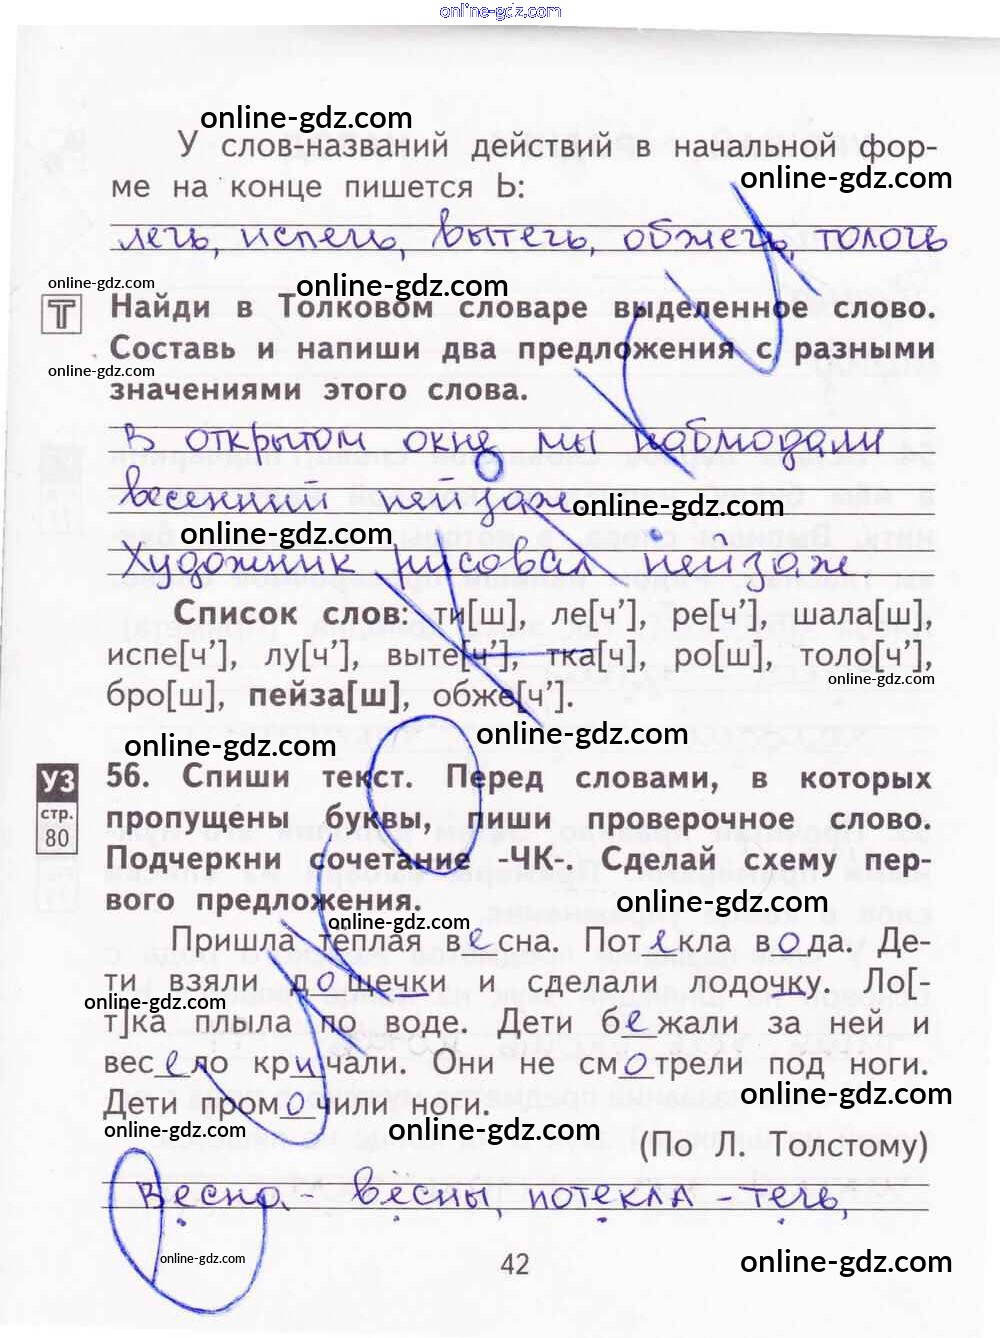 online-gdz.com
online-gdz.com
У слов-названий действий в начальной фор-
ме на конце пишется Ь:
online-gdz.com
лечь, испечь, вытечь, обжечь, толочь
online-gdz.com
online-gdz.com
Т Найди в Толковом словаре выделенное слово.
Составь и напиши два предложения с разными
online-gdz.com
значениями этого слова.
В открытом окне мы наблюдали
весенний пейзаж.
online-gdz.com
online-gdz.com
Художник рисовал пейзаж
Список слов: ти[ш], ле[ч’], ре[ч’], шала[ш],
испе[ч’], лу[ч’], выте[ч’], тка[ч], ро[ш], толо[ч’],
online-gdz.com
бро[ш], пейза[ш], обже[ч’].
online-gdz.com
online-gdz.com
УЗ
стр.
80
56. Спиши текст. Перед словами, в которых
пропущены буквы, пиши проверочное слово.
Подчеркни сочетание -ЧК-. Сделай схему пер-
вого предложения.
online-gdz.com
online-gdz.com
Пришла тёплая весна. Потекла вода. Де-
ти взяли дощечки и сделали лодочку. Ло[-
online-gdz.com
т]ка плыла по воде. Дети бежали за ней и
весело кричали. Они не смотрели под ноги.
online-gdz.com
Дети промочили ноги.
online-gdz.com
online-gdz.com
(По Л. Толстому)
Весна - вёсны, потекла - течь,
online-gdz.com
42
online-gdz.com